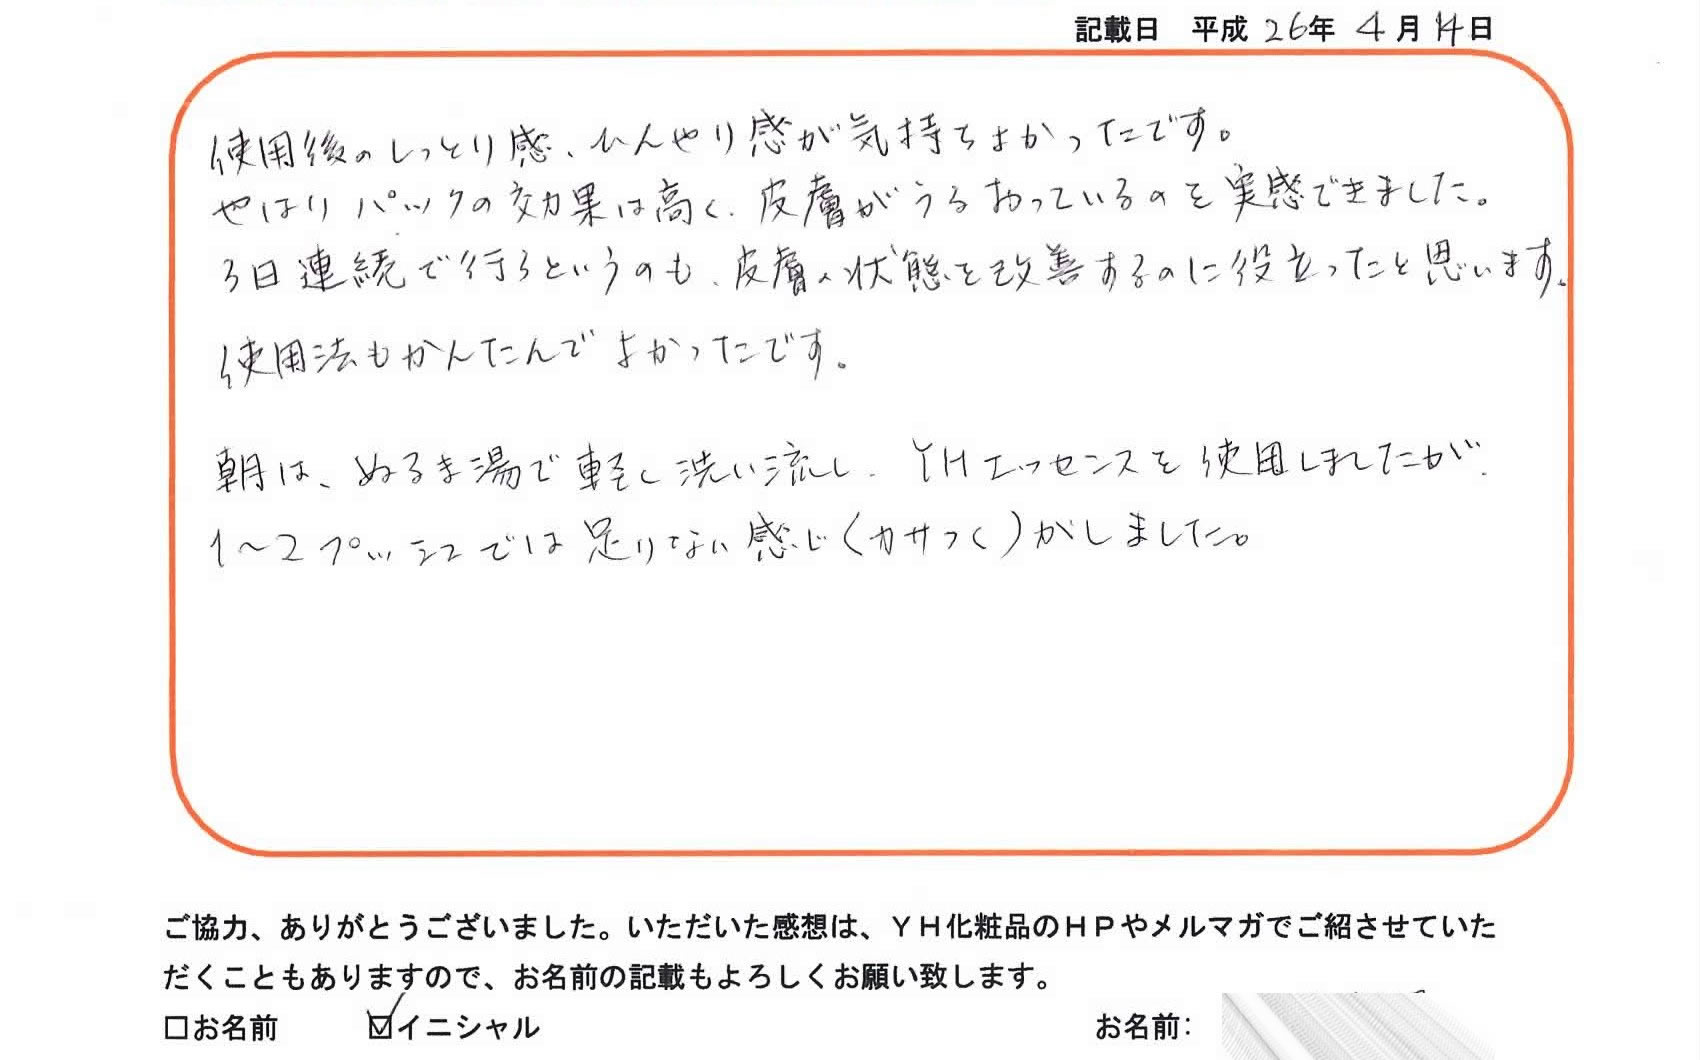 記載日 平成 26年 4月 14日
使用後のしっとり感、ひんやり感が気持ちよかったです。
やはりパックの効果は高く、皮膚がうるおっているのを実感できました。
3日連続で行うというのも、皮膚の状態を改善するのに役立ったと思います。
使用法もかんたんでよかったです。
朝は、ぬるま湯で軽く洗い流し、YHエッセンスを使用しましたが、
1～2プッシュでは足りない感じ(カサつく)がしました。
ご協力、ありがとうございました。いただいた感想は、ＹＨ化粧品のＨＰやメルマガでご紹させていた
だくこともありますので、お名前の記載もよろしくお願い致します。
□お名前 ☑イニシャル お名前：